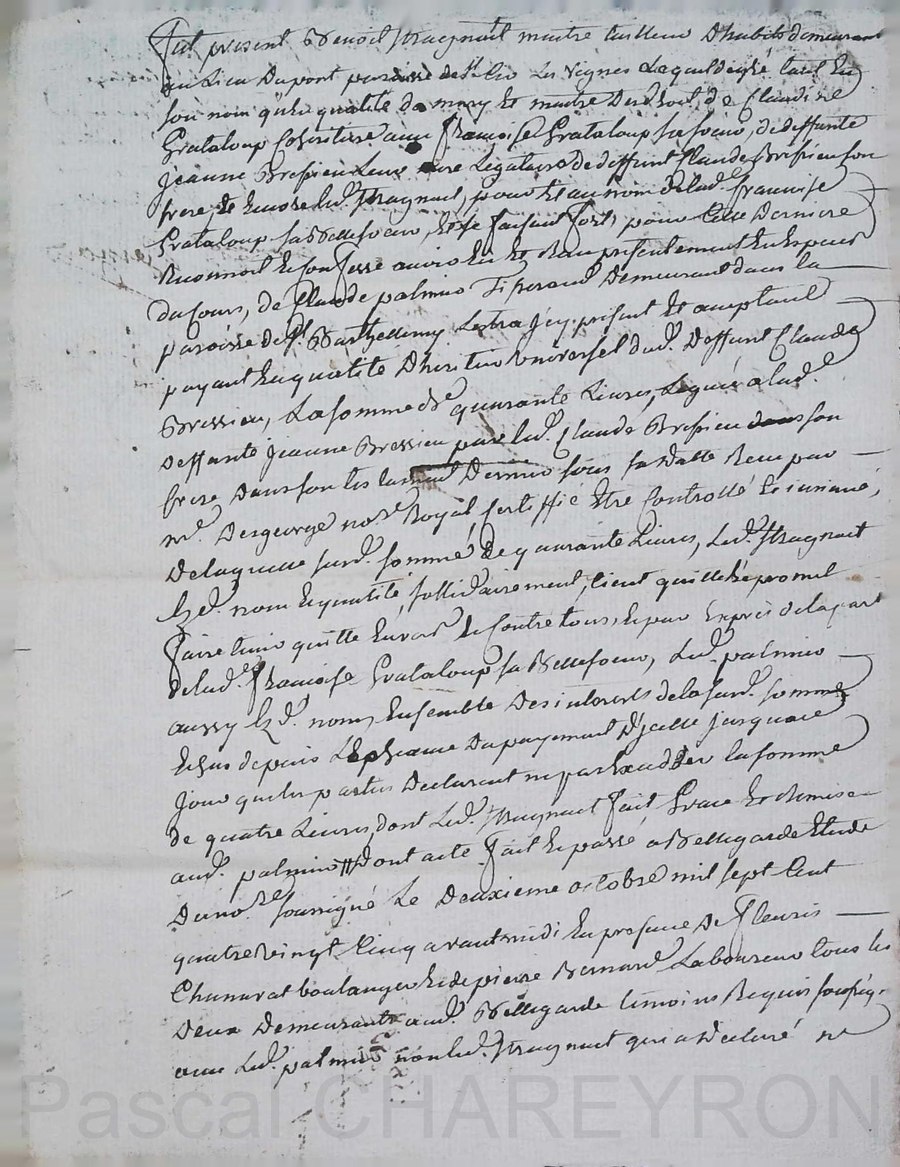 fut présent Benoît Magnant maitre tailleur D'habits demeurant
au Lieu Dupont paroisse de St Cir Les Vignes Lequel de gré tant En
son nom qu'En qualité de mary Et maitre Des droits de Claudine
Grataloup Cohéritiere avec françoise Grataloup sa soeur, de deffunte
Jeanne Bressieu Leur mere Légataire de deffunt Claude Bressieu son
frere Et Encore led. Magnant, pour Et au nom de lad. françoise
Grataloup sa Bellesoeur, Et se faisant fort, pour cette Derniere
Reconnoit Et confesse avoir Eu Et Reçu présentement En Especes
du Cours, de Claude palmier Tisserand Demeurant dans la
paroisse de St Barthellemy Lestra Icy présent Et acceptant
payant En qualité D'héritier universel dud. Deffunt Claude
Bressieu, La somme de quarante Livres, Leguée a lad.
deffunte Jeanne Bressieu par led. Claude Bressieu son
frere Dans son testament Dernier sous sa datte Reçu par
me. Desgeorge nore Royal Certiffié Etre Controllé Et insinué,
De laquelle susd. somme De quarante Livres, Led. Magnant
Esd. nom Et qualité, sollidairement, tient quitte Et promet
faire tenir quitte Envers Et Contre tous, Et par Exprès de la part
de lad. françoise Grataloup sa Bellesoeur, Led. palmier
aussy Esd. noms, Ensemble Des intérêts de la susd. somme
Echus depuis L'Echeance Du payement D'jcelle jusqu'a ce
Jour que les parties Declarent ne pas Exceder la somme
de quatre Livres, dont Led. Magnant fait Grace Et Remise
aud. palmier Dont acte fait Et passé a Bellegarde Etude
Du nore soussigné Le Deuxieme octobre mil sept Cent
quatre vingt Cinq avant midi En présence De fleuris
Chanavat boulanger Et de pierre Bernard Laboureur tous les
Deux Demeurants aud. Bellegarde temoins Requis soussignés
avec Led. palmier non led. Magnant qui a Déclaré ne
Pascal CHAREYRON